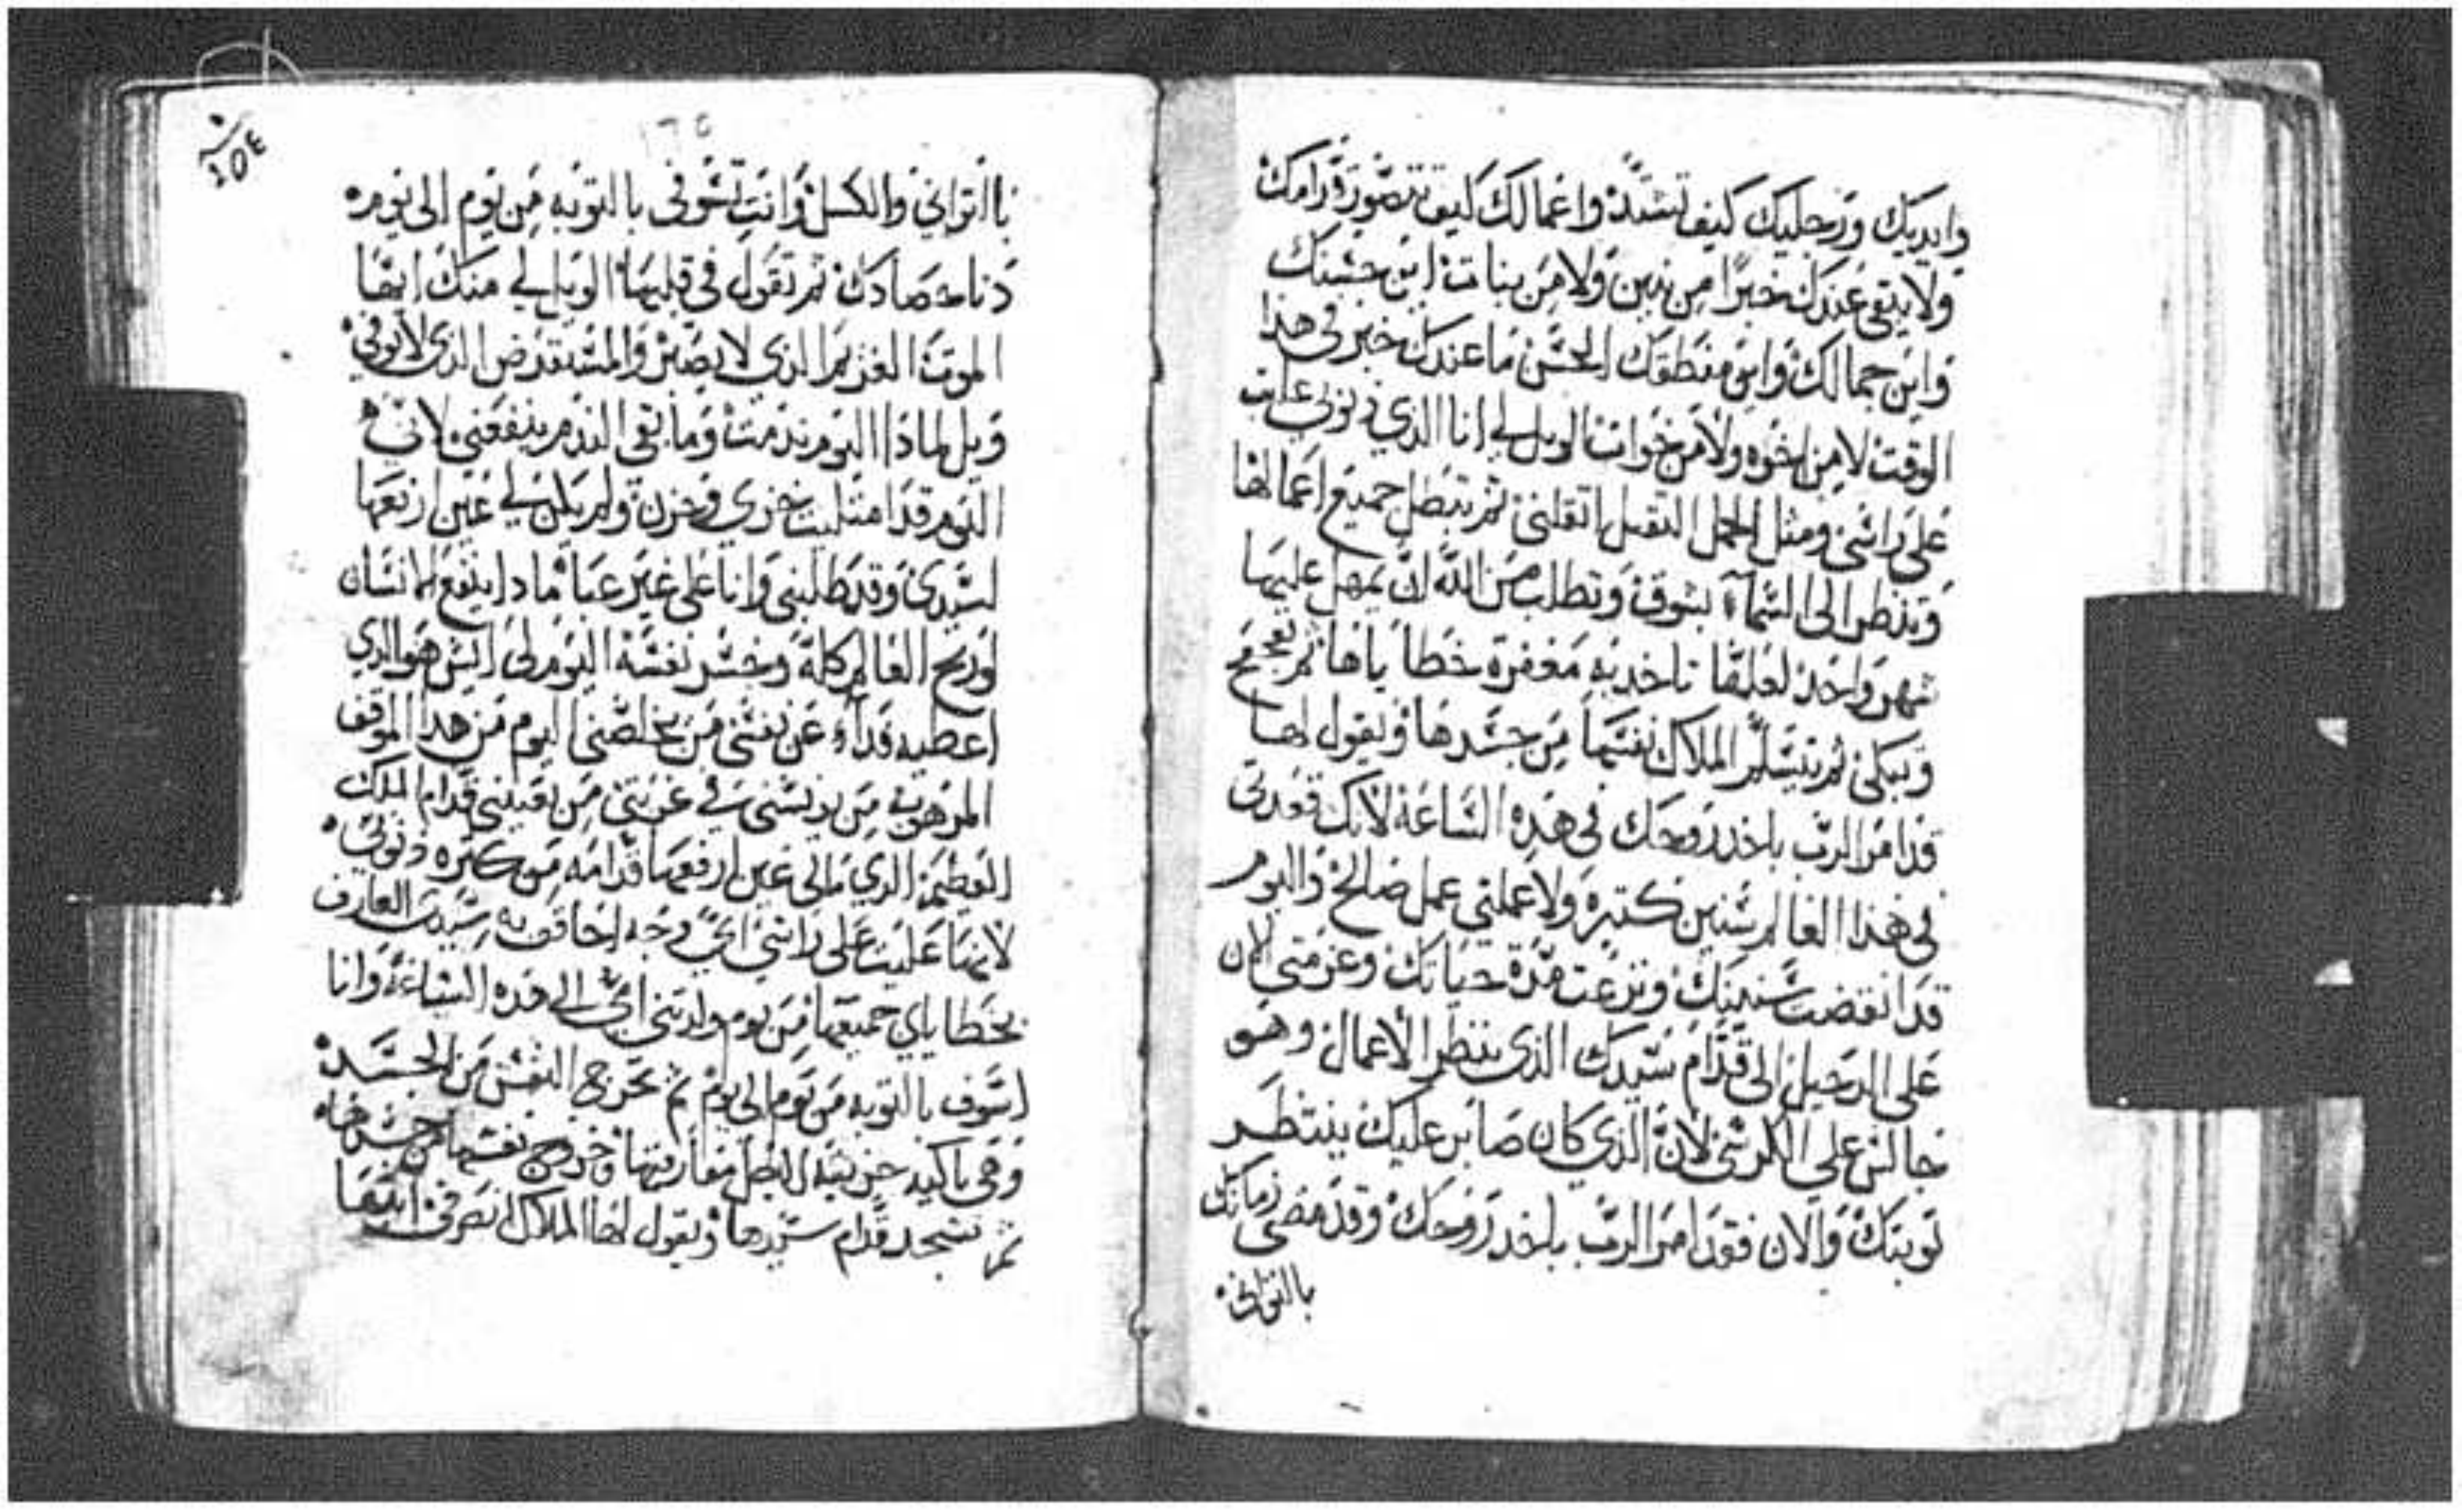 وايديك ورجليك كيف تشتد واعمالك كيف تتصور قدامك
ولا يبقى عندك خبرًا من بنين ولا من بنات اين حسنك
واين جمالك واين منطقك الحسن ما عندك خبر في هذا
الوقت لا من اخوه ولا من خوات الويل لي انا الذي ذنوبي علت
على راسي ومثل الحمل الثقيل اثقلني ثم تبطل جميع اعمالها
وتنظر الى السمآء بشوق وتطلب من الله ان يمهل عليها
شهر واحد لعلها تاخد به مغفرة خطاياها ثم
وتبكي ثم يتسلم الملاك نفسها من جسدها ويقول لها
قد امر الرب باخد روحك في هذه الساعة لانك قعدتي
في هذا العالم سنين كتيره ولا عملتي عمل صالح واليوم
قد انقضت سنينك ونزعت مدة حياتك وعزمتي الان
على الرحيل الى قدام سيدك الذي ينظر الاعمال وهو
جالس على الكرسي لان الذي كان صابر عليك ينتظر
توبتك والان فقد امر الرب باخد روحك وقد مضى زمانك
بالتواني
٢٥٤
با التواني والكسل وانت تسوفي بالتوبه من يوم الى يوم
ثم تقول في قلبها الويل لي منك ايها
الموت الغريم الذي لا يصبر والمستقرض الذي لا يوفي
ويل لماذا اليوم ندمت وما بقي الندم ينفعني لاني
اليوم قد امتليت خزي وحزن ولم يكن لي عين ارفعها
لسيدي وقد طلبني وانا على غير عبا ما دا ينفع الانسان
لو ربح العالم كله وخسر نفسه اليوم لي ايش هو الذي
اعطيه فداء عن نفسي من يخلصني اليوم من هذا الموقف
المرهوب من يونسني في غربتي من يعينني قدام الملك
العظيم الذي مالي عين ارفعها قدامه من كتره ذنوبي
لانها علت على راسي اي وجه الاقي به سيدي العارف
بخطاياي جميعها من يوم ولدتني امي الى هذه الساعة وانا
اسوف بالتوبه من يوم الى يوم ثم تخرج النفس من الجسد
وهي باكيه حزينه لاجل مفارقتها وخروج نفسها من جسدها
ثم تسجد قدام سيدها ويقول لها الملاك انصرفي ايتها